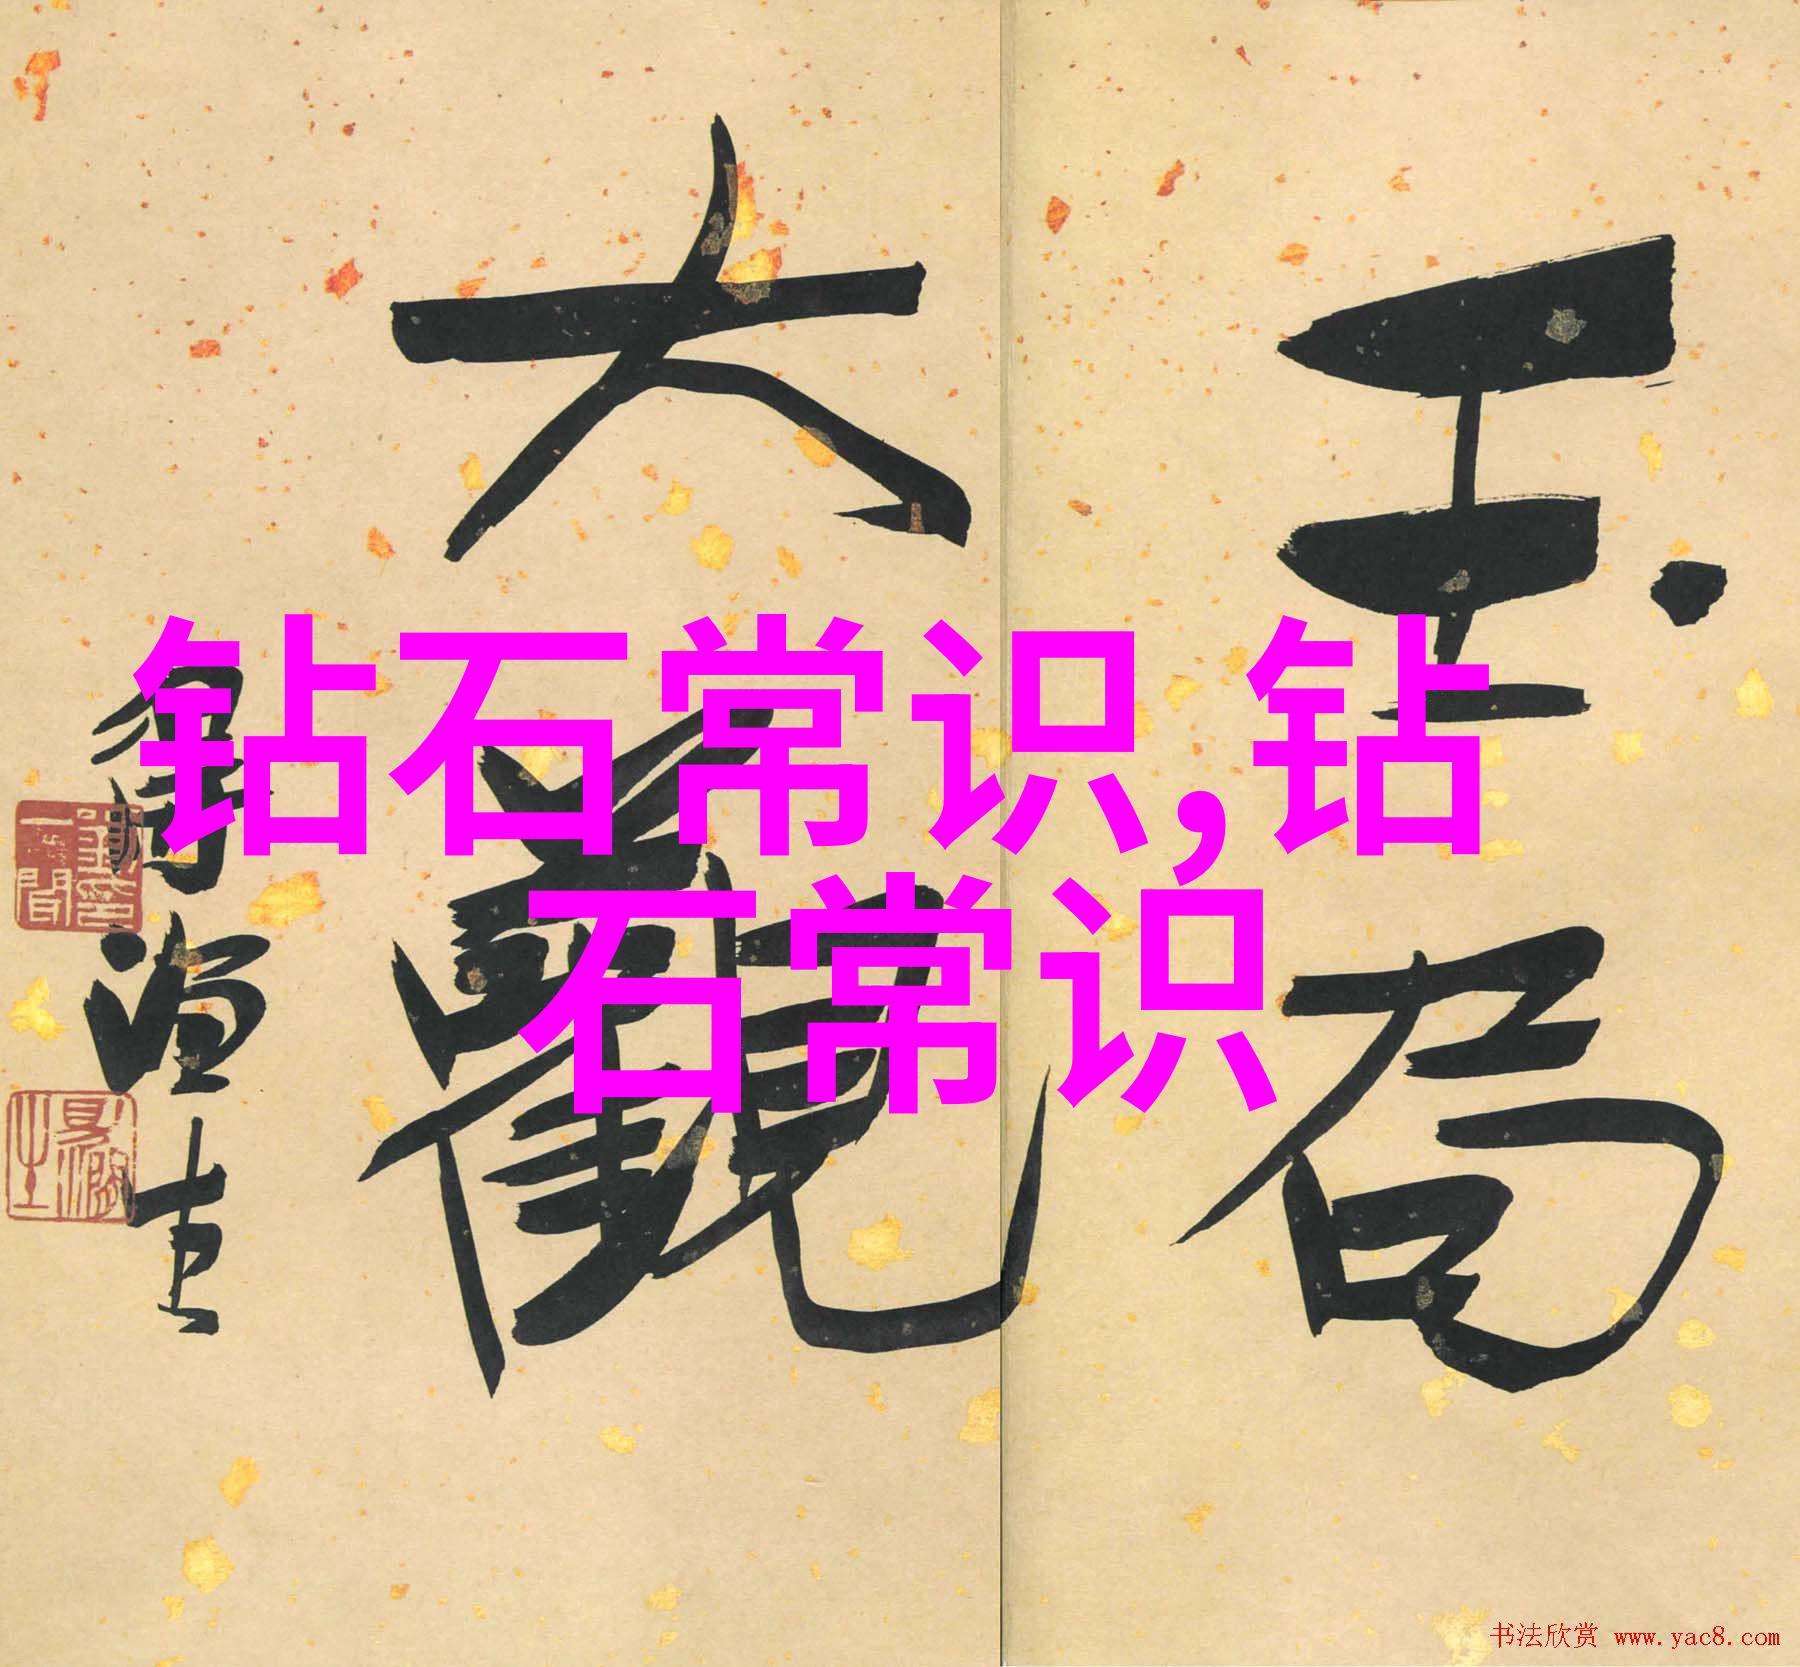 钻石常识,钻
石常识
玉局
大觀
书法欣赏 www.yac8.com